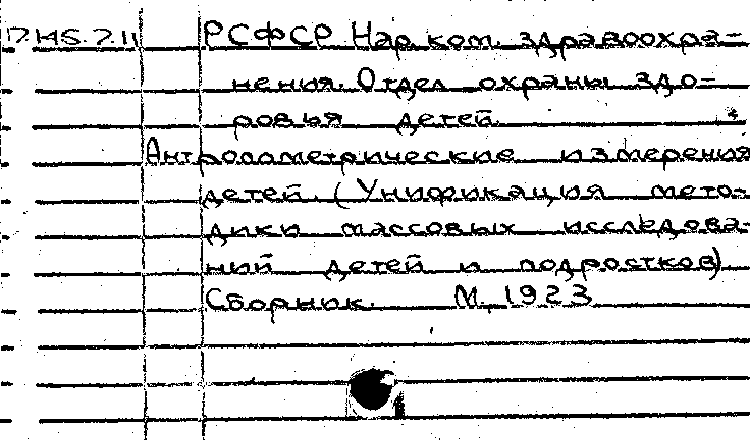 17.145.7.11 РСФСР Нар. ком. здравоохра-
нения. Отдел охраны здо-
ровья детей.
Антропометрические измерения
детей. (Унификация мето-
дики массовых исследова-
ний детей и подростков)
Сборник. М, 1923